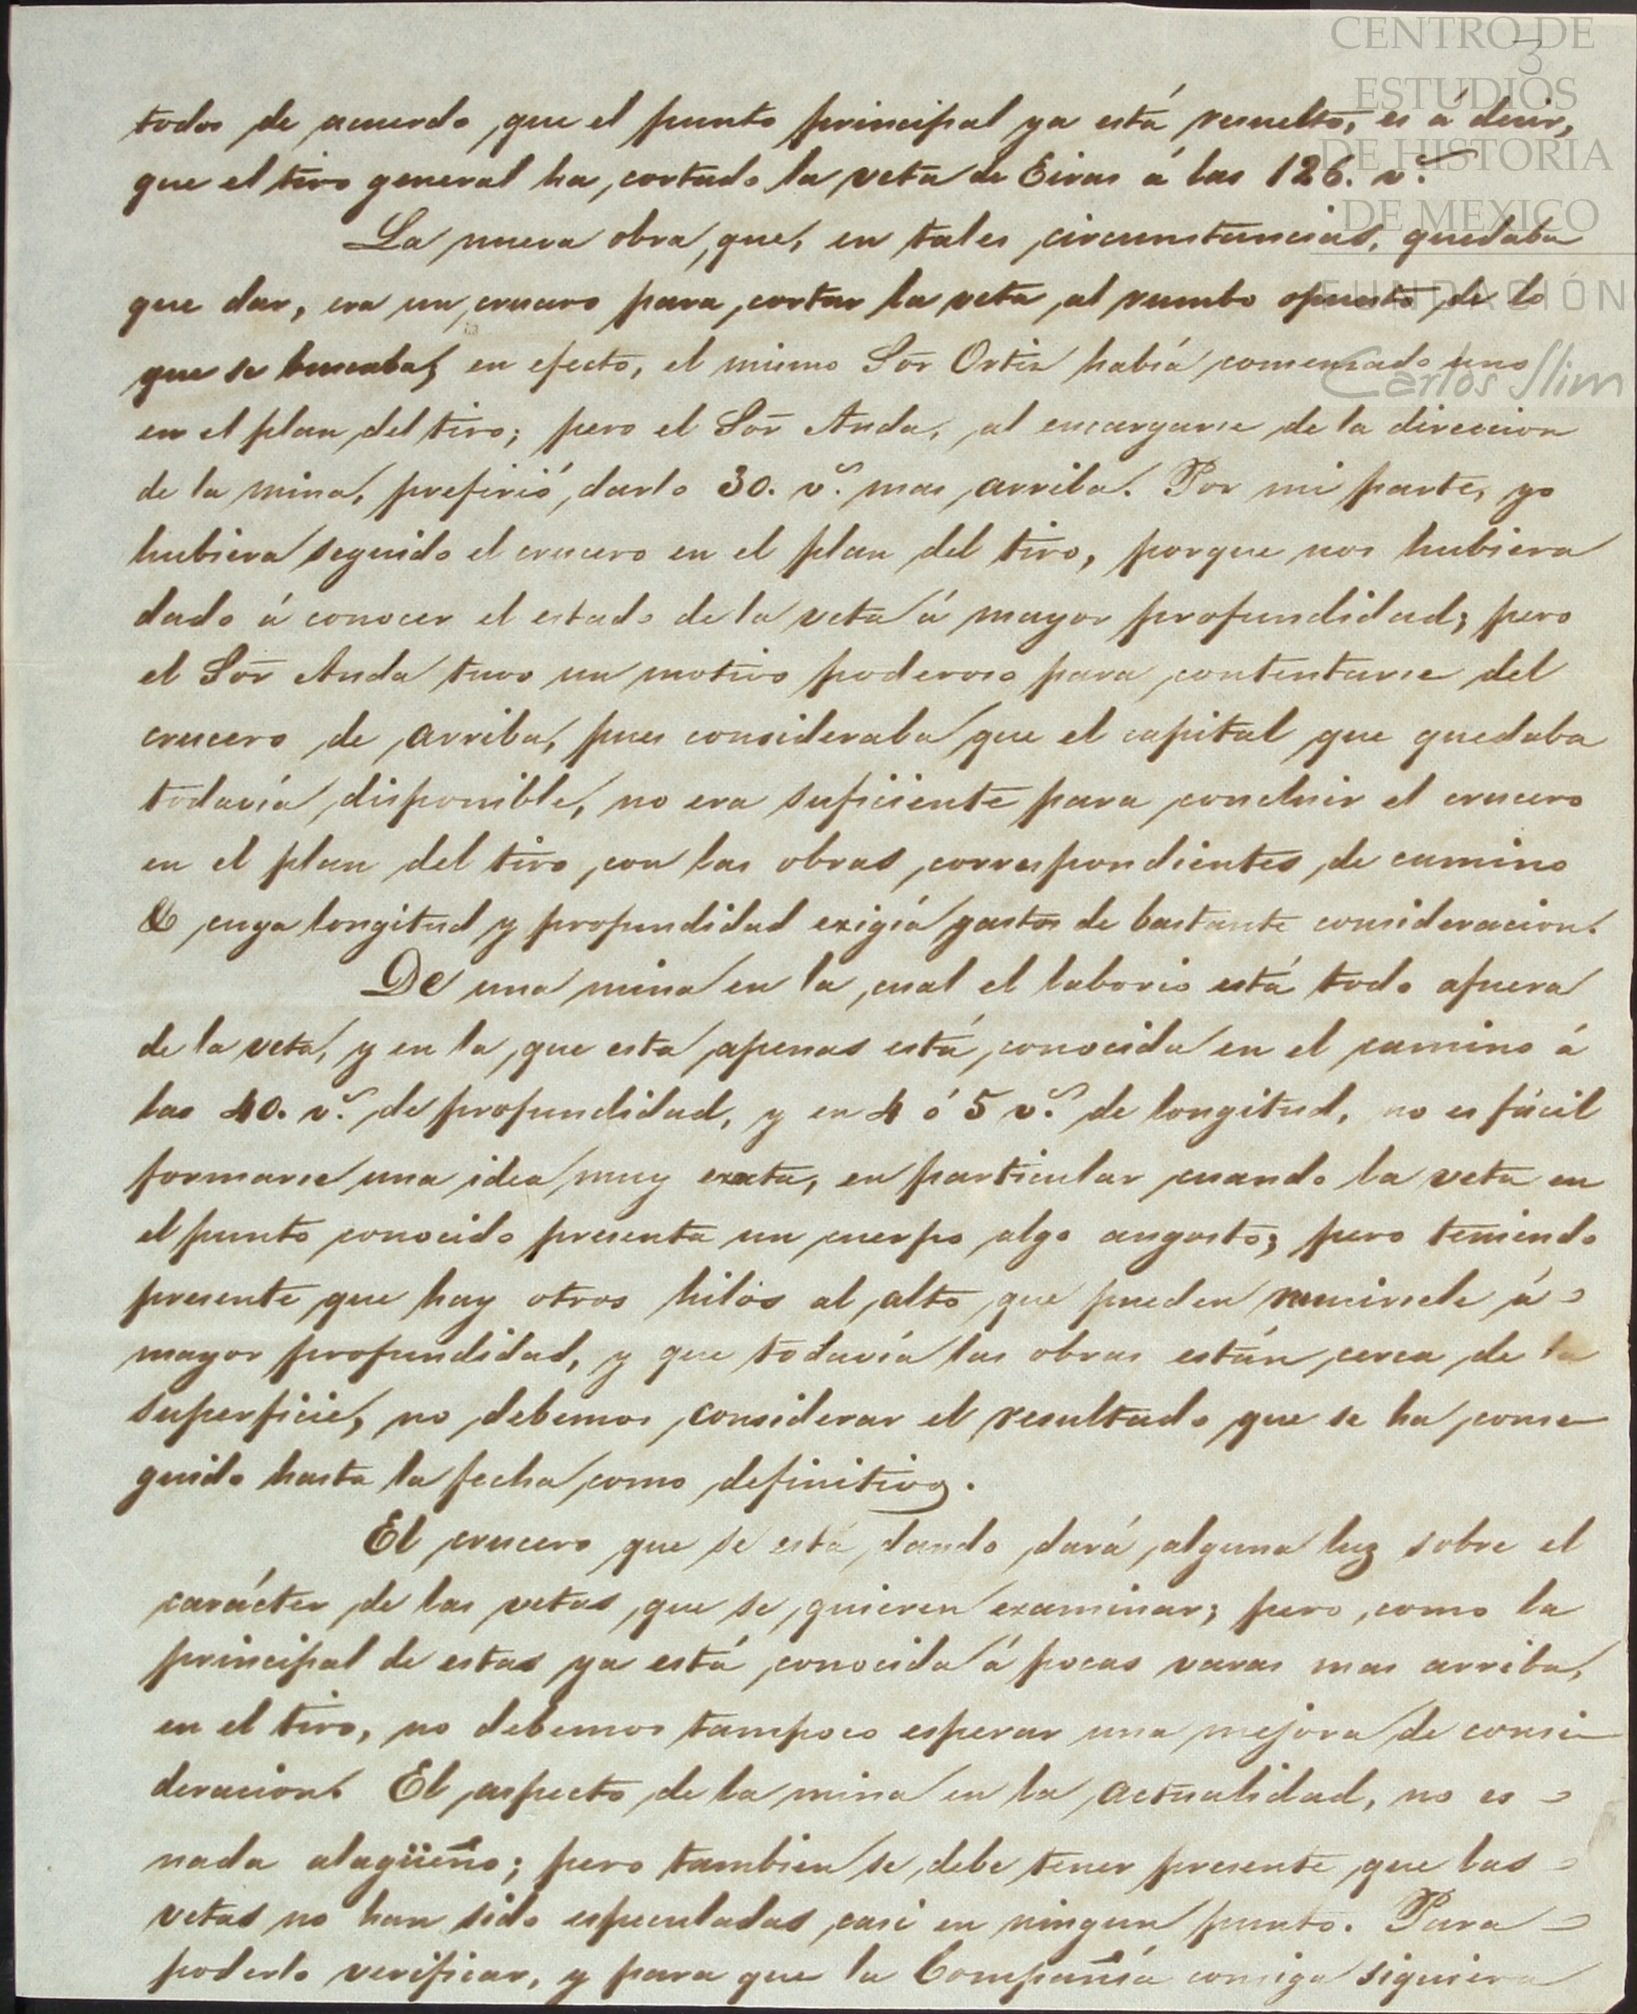 CENTRO DE
ESTUDIOS
DE HISTORIA
DE MEXICO
FUNDACIÓN
Carlos Slim
3
todos de acuerdo, que el punto principal ya está resuelto, es á decir,
que el tiro general ha cortado la veta de Eiras á las 126. v.s
La nueva obra, que, en tales circunstancias, quedaba
que dar, era un crucero para cortar la veta al rumbo opuesto de lo
que se buscaba; en efecto, el mismo Sor Ortiz había comenzado uno
en el plan del tiro; pero el Sor Anda, al encargarse de la direccion
de la mina, prefirió darlo 30. v.s mas arriba. Por mi parte, yo
hubiera seguido el crucero en el plan del tiro, porque nos hubiera
dado á conocer el estado de la veta á mayor profundidad; pero
el Sor Anda tuvo un motivo poderoso para contentarse del
crucero de arriba, pues consideraba que el capital que quedaba
todavía disponible, no era suficiente para concluir el crucero
en el plan del tiro con las obras correspondientes de camino
& cuya longitud y profundidad exigía gastos de bastante consideracion.
De una mina en la cual el laborio está todo afuera
de la veta, y en la que esta apenas está conocida en el camino á
las 40. v.s de profundidad, y en 4 ó 5 v.s de longitud, no es fácil
formarse una idea muy exata, en particular cuando la veta en
el punto conocido presenta un cuerpo algo angosto; pero teniendo
presente que hay otros hilos al alto que pueden reunirsele á
mayor profundidad, y que todavía las obras están cerca de la
superficie, no debemos considerar el resultado que se ha conse
guido hasta la fecha como definitivo.
El crucero que se está dando dará alguna luz sobre el
carácter de las vetas que se quieren examinar; pero como la
principal de estas ya está conocida á pocas varas mas arriba,
en el tiro, no debemos tampoco esperar una mejora de consi
deracion. El aspecto de la mina en la actualidad, no es
nada alagüeño; pero tambien se debe tener presente que las
vetas no han sido especuladas casi en ningun punto. Para
poderlo verificar, y para que la Compañía consiga siquiera